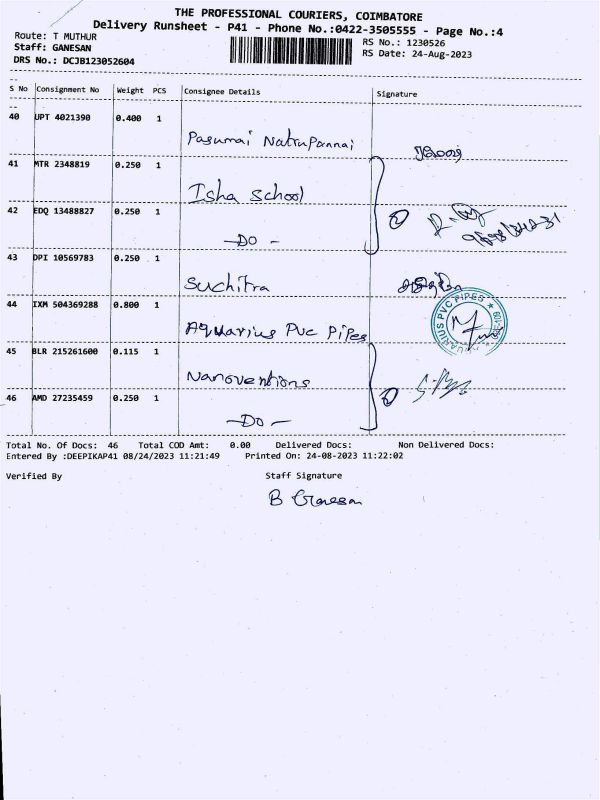 THE PROFESSIONAL COURIERS, COIMBATORE
Delivery Runsheet - P41 - Phone No.:0422-3505555 - Page No.:4
Route: T MUTHUR
RS No.: 1230526
Staff: GANESAN
RS Date: 24-Aug-2023
DRS No.: DCJB123052604
S No Consignment No Weight PCS Consignee Details Signature
40 UPT 4021390 0.400 1
Pasumai Natrupannai
41 MTR 2348819 0.250 1
Isha School
42 EDQ 13488827 0.250 1
-DO-
43 DPI 10569783 0.250 1
Suchitra
44 IXM 504369288 0.800 1
Aquarius Pvc Pipes
45 BLR 215261600 0.115 1
Nanoventions
46 AMD 27235459 0.250 1
-DO-
Total No. Of Docs: 46 Total COD Amt: 0.00 Delivered Docs: Non Delivered Docs:
Entered By :DEEPIKAP41 08/24/2023 11:21:49 Printed On: 24-08-2023 11:22:02
Verified By Staff Signature
B Ganesan